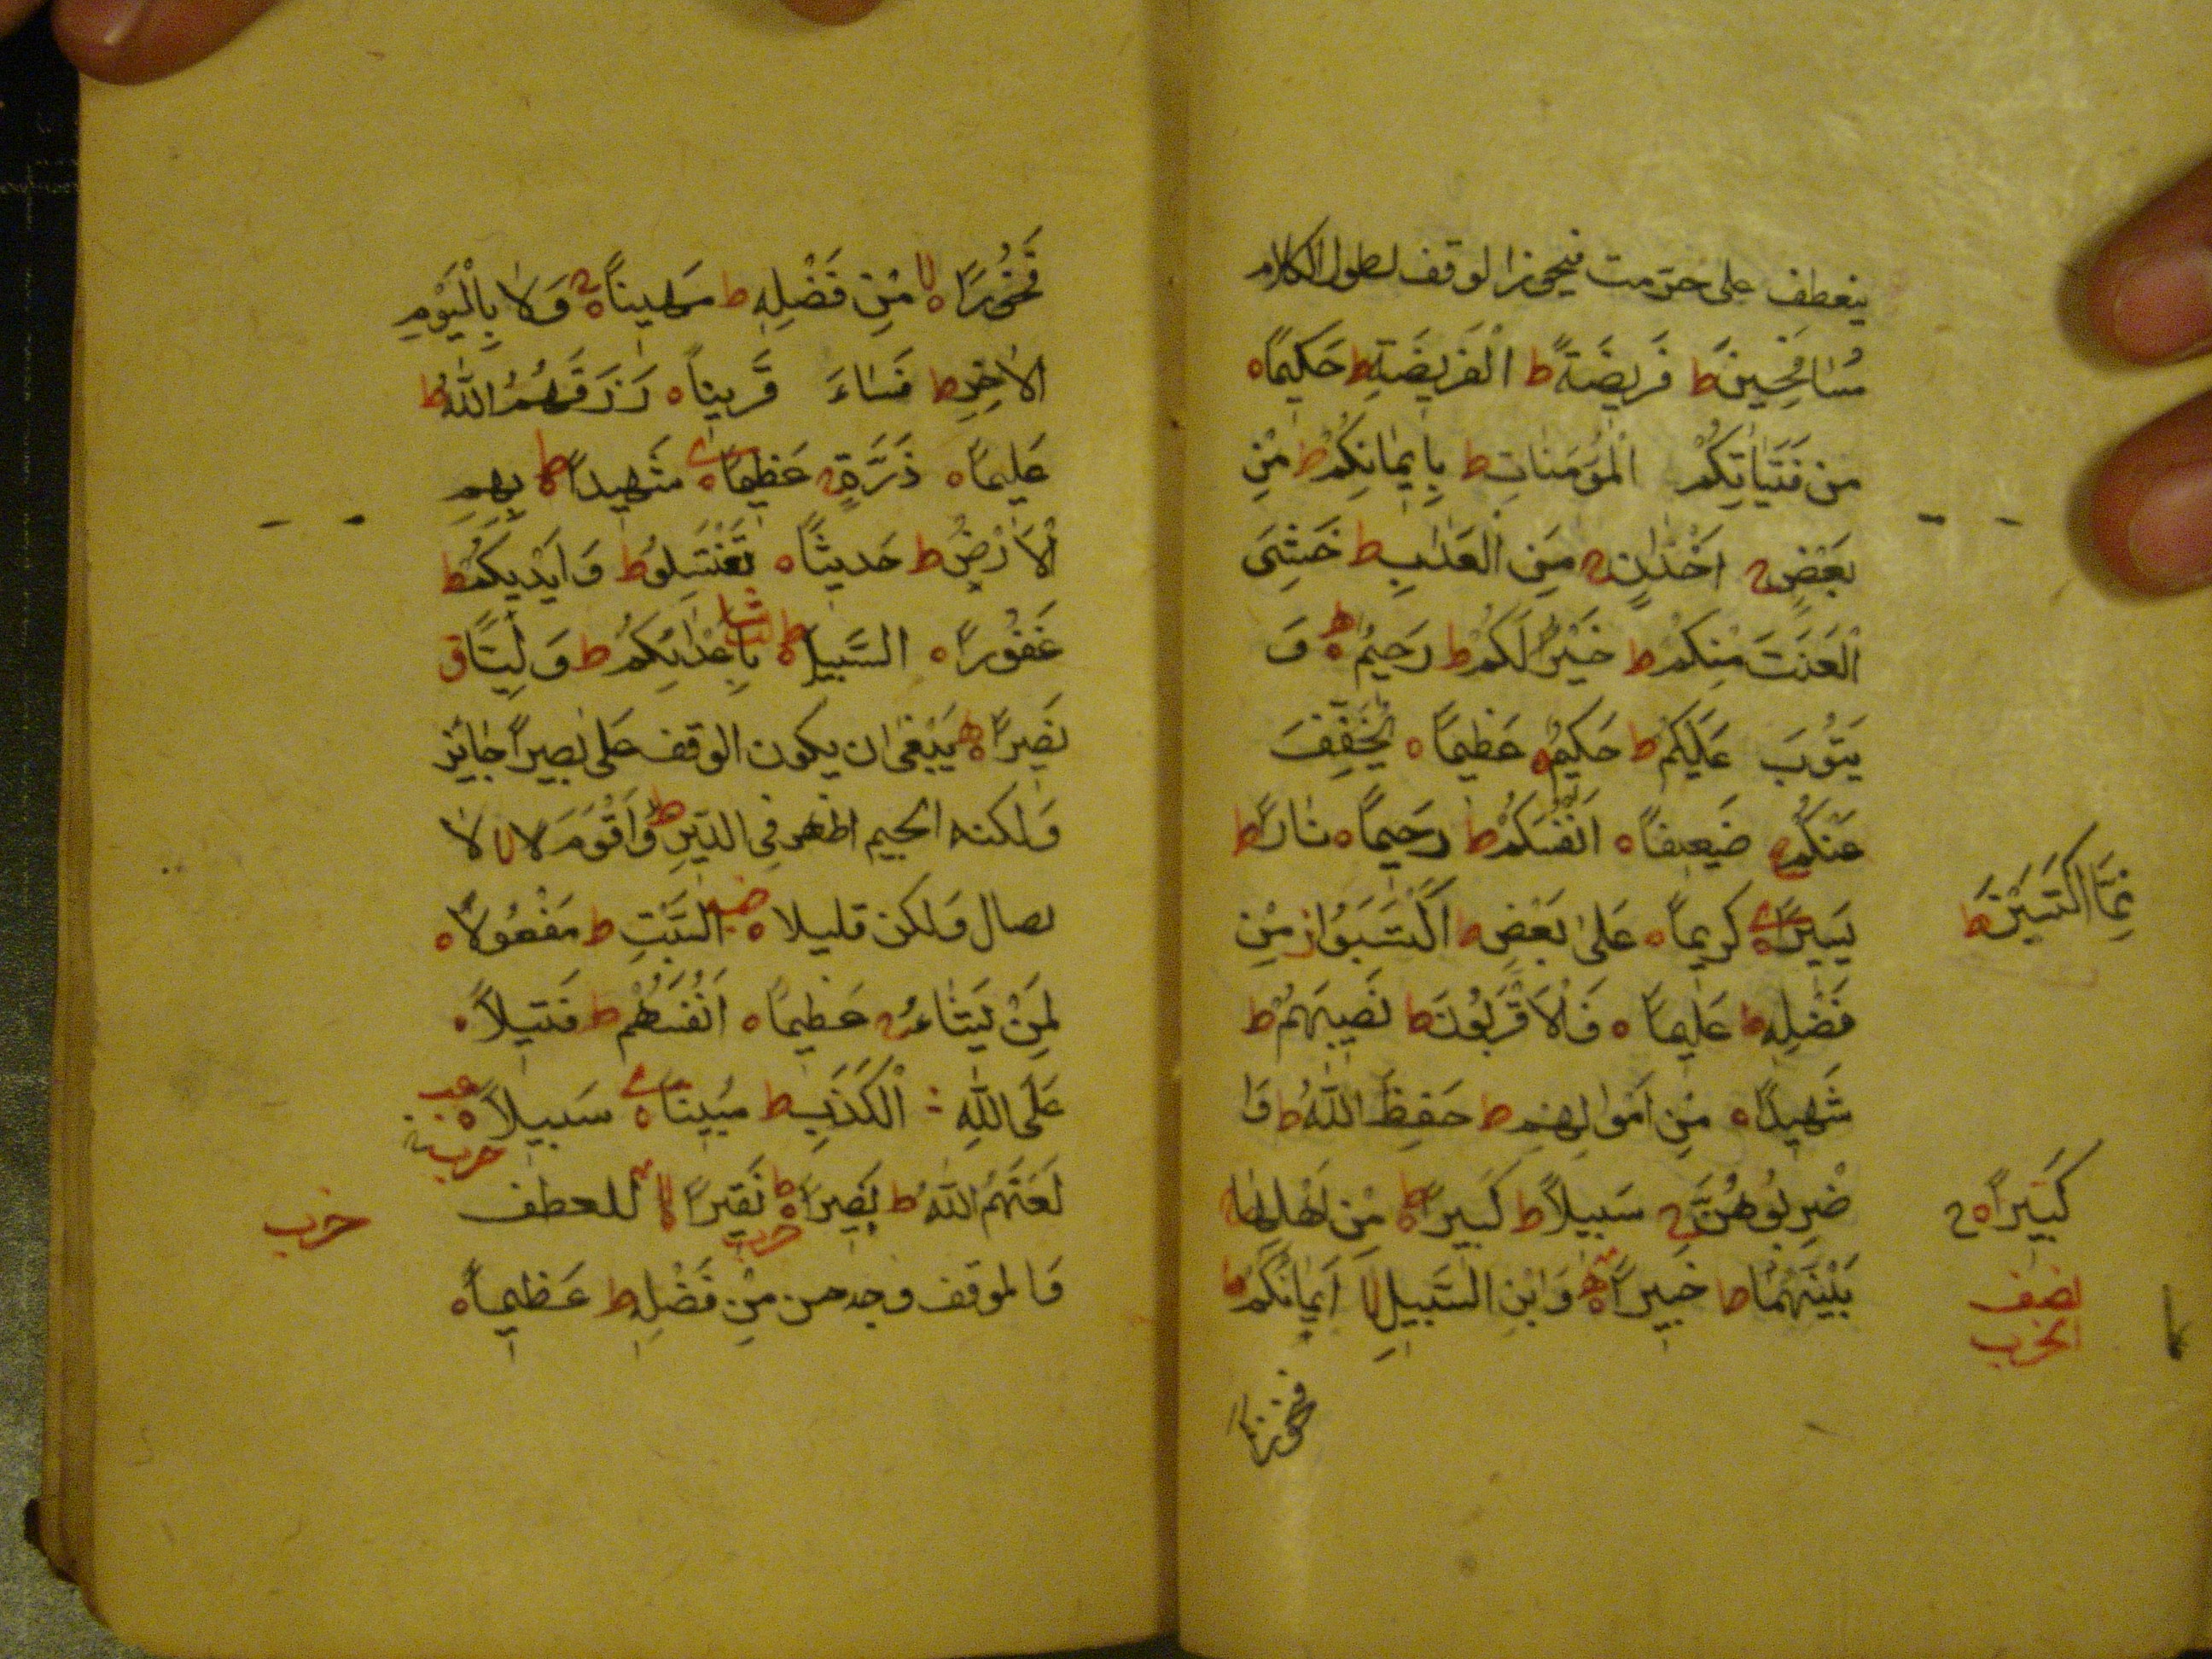 ينعطف على حرّمت فيجوز الوقف لطول الكلام
مُسَافِحِينَ ط فَرِيضَةً ط الْفَرِيضَةِ ط حَكِيمًا ه
مِن فَتَيَاتِكُمْ الْمُؤمِنَاتِ ط بِإِيمَانِكُمْ ط مِنْ
بَعْضٍ ج اَخْدَانٍ ج مِنَ الْعَذَابِ ط خَشِىَ
الْعَنَتَ مِنكُمْ ط خَيْرٌ لَكُمْ ط رَحِيمٌ ه وَ
يَتُوبَ عَلَيْكُمْ ط حَكِيمٌ ه عَظِيمًا ه يُخَفِّفَ
عَنْكُمْ ج ضَعِيفًا ه اَنْفُسَكُمْ ط رَحِيمًا ه نَارًا ط
يَسِيرًا ه كَرِيمًا ه عَلَى بَعْضٍ ط اكْتَسَبُوا ز مِنْ
مِمَّا اكْتَسَبْنَ ط
فَضْلِهِ ط عَلِيمًا ه وَالْاَقْرَبُونَ ط نَصِيبَهُمْ ط
شَهِيدًا ه مِنْ اَمْوَالِهِمْ ط حَفِظَ اللّٰهُ ط وَا
ضْرِبُوهُنَّ ج سَبِيلاً ط كَبِيرًا ه مِنْ اَهْلِهَا ج
كَبِيرًا ه ج
بَيْنَهُمَا ط خَبِيرًا ه وَابْنِ السَّبِيلِ لا اَيْمَانُكُمْ ط
نصف
الحزب
فخورًا
فَخُورًا ه لا مِنْ فَضْلِهِ ط مُهِينًا ه ج وَلَا بِالْيَوْمِ
الْاخِرِ ط فَسَاءَ قَرِينًا ه رَزَقَهُمُ اللّٰهُ ط
عَلِيمًا ه ذَرَّةٍ ج عَظِيمًا ه شَهِيدًا ه ط بِهِمِ
الْاَرْضُ ط حَدِيثًا ه تَغْتَسِلُوا ط وَاَيْدِيكُمْ ط
غَفُورًا ه السَّبِيلَ ه ط بِاَعْدَائِكُمْ ط وَلِيًّا ق
نَصِيرًا ه ينبغى ان يكون الوقف على نصيرا جائز
ولكنه الجيم اظهر فِى الدِّينِ ط وَاَقْوَمَ لا لا
يصال ولكن قليلا ه السَّبْتِ ط مَفْعُولًا ه
لِمَنْ يَشَاءُ ج عَظِيمًا ه اَنْفُسَهُمْ ط فَتِيلاً ه
عَلَى اللّٰهِ الْكَذِبَ ط مُبِينًا ه سَبِيلاً ه
لَعَنَهُمُ اللّٰهُ ط نَصِيرًا ه ط نَقِيرًا ه لا للعطف
حزب
والموقف وجه حسن مِنْ فَضْلِهِ ط عَظِيمًا ه